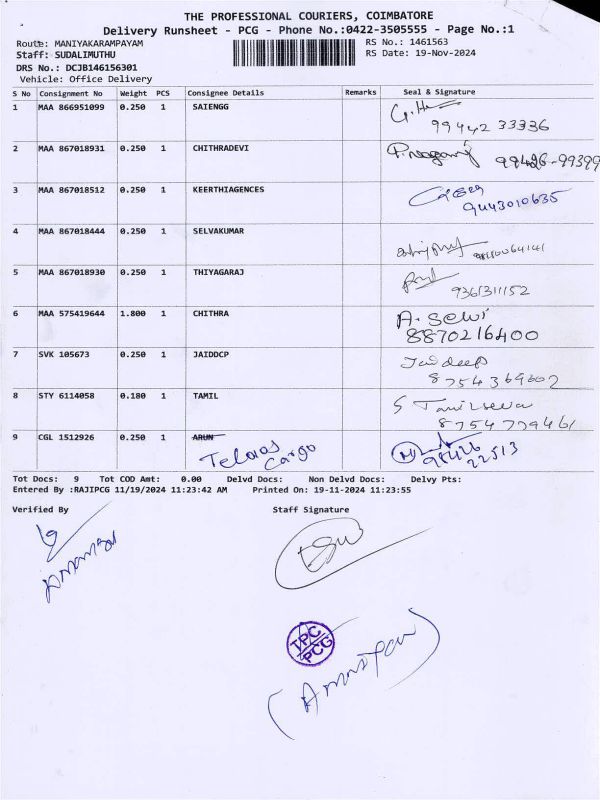 THE PROFESSIONAL COURIERS, COIMBATORE
Delivery Runsheet - PCG - Phone No.:0422-3505555 - Page No.:1
Route: MANIYAKARAMPAYAM RS No.: 1461563
Staff: SUDALIMUTHU RS Date: 19-Nov-2024
DRS No.: DCJB146156301
Vehicle: Office Delivery
S No Consignment No Weight PCS Consignee Details Remarks Seal & Signature
1 MAA 866951099 0.250 1 SAIENGG
99442 33336
2 MAA 867018931 0.250 1 CHITHRADEVI
99426-99399
3 MAA 867018512 0.250 1 KEERTHIAGENCES
9443010635
4 MAA 867018444 0.250 1 SELVAKUMAR
5 MAA 867018930 0.250 1 THIYAGARAJ
9361311152
6 MAA 575419644 1.800 1 CHITHRA A. Selvi
8870216400
7 SVK 105673 0.250 1 JAIDDCP Jaideep
8754369602
8 STY 6114058 0.180 1 TAMIL S Tamilselva
8754779461
9 CGL 1512926 0.250 1 ARUN
Cargo
98426
22513
Tot Docs: 9 Tot COD Amt: 0.00 Delvd Docs: Non Delvd Docs: Delvy Pts:
Entered By :RAJIPCG 11/19/2024 11:23:42 AM Printed On: 19-11-2024 11:23:55
Verified By Staff Signature
TPC
PCG